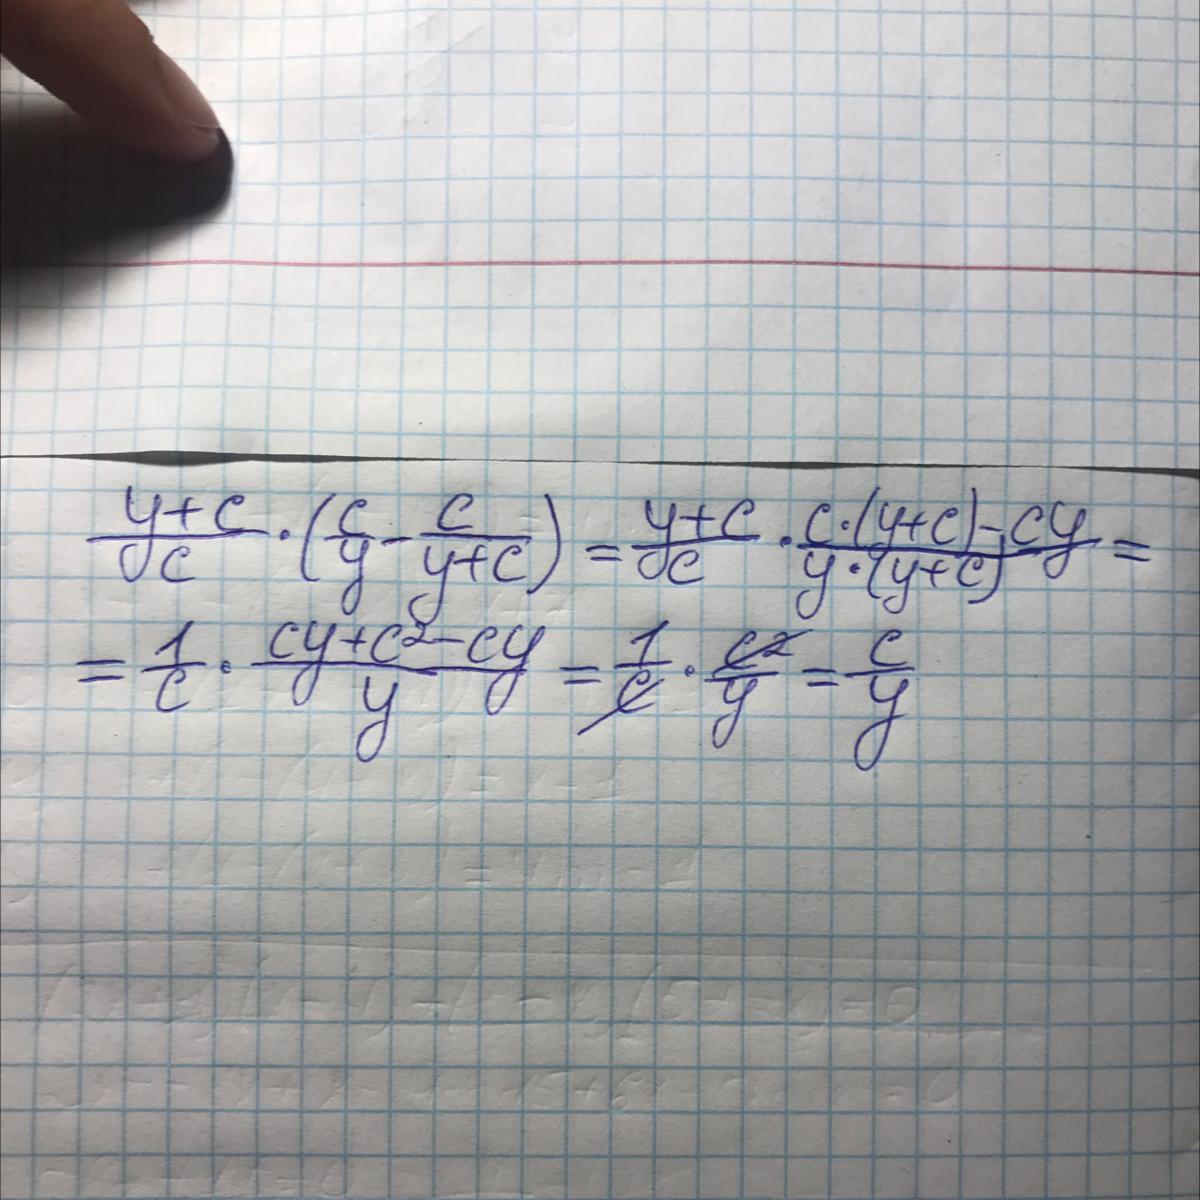 (y+c)/c · (c/y - c/(y+c)) = (y+c)/c · (c·(y+c)-cy)/(y·(y+c)) =
= 1/c · (cy+c²-cy)/y = 1/c · c²/y = c/y